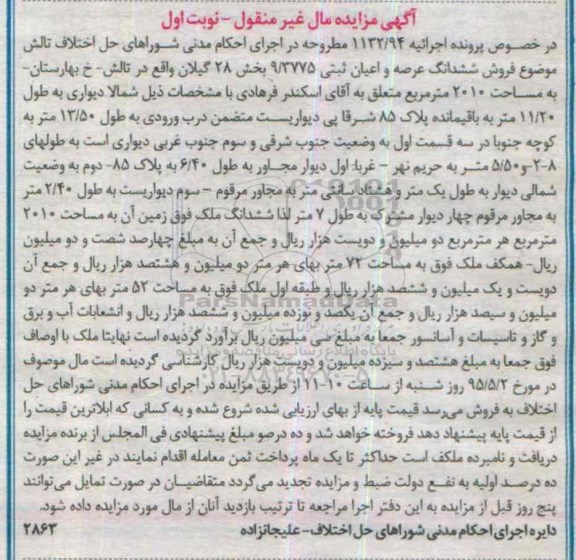 آگهی مزایده مال غیر منقول - نوبت اول
در خصوص پرونده اجرائیه ۱۱۳۲/۹۴ مطروحه در اجرای احکام مدنی شوراهای حل اختلاف تالش
موضوع فروش ششدانگ عرصه و اعیان ثبتی ۹/۳۷۷۵ بخش ۲۸ گیلان واقع در تالش- خ بهارستان-
به مساحت ۲۰۱۰ مترمربع متعلق به آقای اسکندر فرهادی با مشخصات ذیل شمالا دیواری به طول
۱۱/۲۰ متر به باقیمانده پلاک ۸۵ شرقا پی دیواریست متضمن درب ورودی به طول ۱۳/۵۰ متر به
کوچه جنوبا در سه قسمت اول به وضعیت جنوب شرقی و سوم جنوب غربی دیواری است به طولهای
۸-۲-و۵/۵۰ متر به حریم نهر - غربا: اول دیوار مجاور به طول ۶/۴۰ به پلاک ۸۵- دوم به وضعیت
شمالی دیوار به طول یک متر و هشتاد سانتی متر به مجاور مرقوم - سوم دیواریست به طول ۲/۴۰ متر
به مجاور مرقوم چهار دیوار مشترک به طول ۷ متر لذا ششدانگ ملک فوق زمین آن به مساحت ۲۰۱۰
مترمربع هر مترمربع دو میلیون و دویست هزار ریال و جمع آن به مبلغ چهارصد شصت و دو میلیون
ریال- همکف ملک فوق به مساحت ۷۲ متر بهای هر متر دو میلیون و هشتصد هزار ریال و جمع آن
دویست و یک میلیون و ششصد هزار ریال و طبقه اول ملک فوق به مساحت ۵۲ متر بهای هر متر دو
میلیون و سیصد هزار ریال و جمع آن یکصد و نوزده میلیون و ششصد هزار ریال و انشعابات آب و برق
و گاز و تاسیسات و آسانسور جمعا به مبلغ سی میلیون ریال برآورد گردیده است نهایتا ملک با اوصاف
فوق جمعا به مبلغ هشتصد و سیزده میلیون و دویست هزار ریال کارشناسی گردیده است مال موصوف
در مورخ ۹۵/۵/۲ روز شنبه از ساعت ۱۰-۱۱ از طریق مزایده در اجرای احکام مدنی شوراهای حل
اختلاف به فروش می‌رسد قیمت پایه از بهای ارزیابی شده شروع شده و به کسانی که ابلاترین قیمت را
از قیمت پایه پیشنهاد دهد فروخته خواهد شد و ده درصو مبلغ پیشنهادی فی المجلس از برنده مزایده
دریافت و نامبرده ملکف است حداکثر تا یک ماه پرداخت ثمن معامله اقدام نمایند در غیر این صورت
ده درصد اولیه به نفع دولت ضبط و مزایده تجدید می‌گردد متقاضیان در صورت تمایل می‌توانند
پنج روز قبل از مزایده به این دفتر اجرا مراجعه تا ترتیب بازدید آنان از مال مورد مزایده داده شود.
دایره اجرای احکام مدنی شوراهای حل اختلاف- علیجانزاده ۲۸۶۳
ParsNamadData